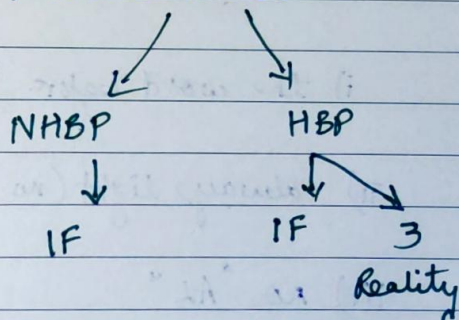 NHBP HBP
IF IF 3
Reality